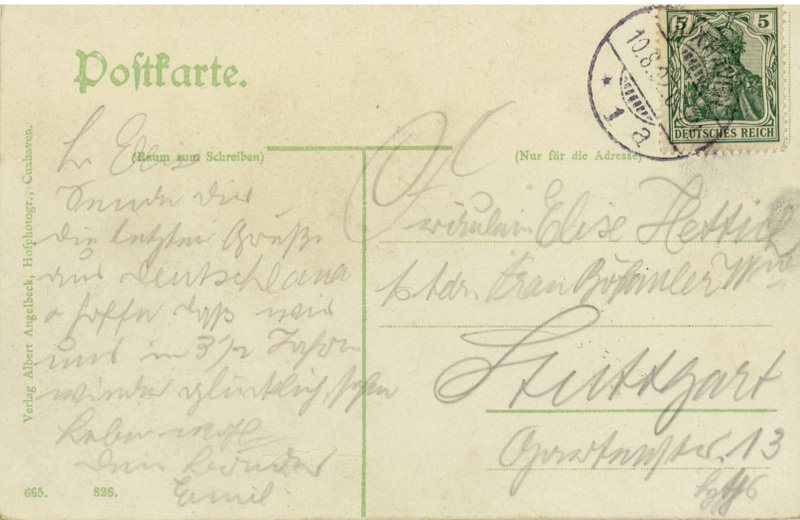 Postkarte.
(Raum zum Schreiben)
(Nur für die Adresse)
Verlag Albert Angelbeck, Hofphotogr., Cuxhaven.
665. 826.
5 5
DEUTSCHES REICH
CUXHAVEN
10.8.
* 1 a
Elise
Sende dir
die letzten Grüße
aus Deutschland
hoffe daß wir
uns in 3½ Jahren
wieder glücklich sehen
Lebe wohl
Dein Bruder
Emil
Fräulein Elise Hettich
Stuttgart
Gartenstr. 13